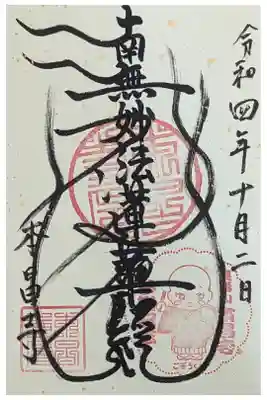 令和四年十月二日
南無妙法蓮華経
本昌寺